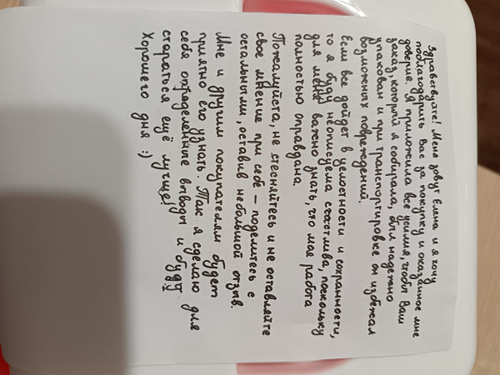 Здравствуйте! Меня зовут Елена и я хочу
поблагодарить Вас за покупку и оказанное мне
доверие. Я приложила все усилия, чтобы Ваш
заказ, который я собирала, был надежно
упакован и при транспортировке он избежал
возможных повреждений.
Если все дойдет в целостности и сохранности,
то я буду неописуемо счастлива, поскольку
для меня важно знать, что моя работа
полностью оправдана.
Пожалуйста, не стесняйтесь и не оставляйте
свое мнение при себе – поделитесь с
остальными, оставив небольшой отзыв.
Мне и другим покупателям будет
приятно его узнать. Так я сделаю для
себя определённые выводы и буду
стараться ещё лучше!
Хорошего дня :)